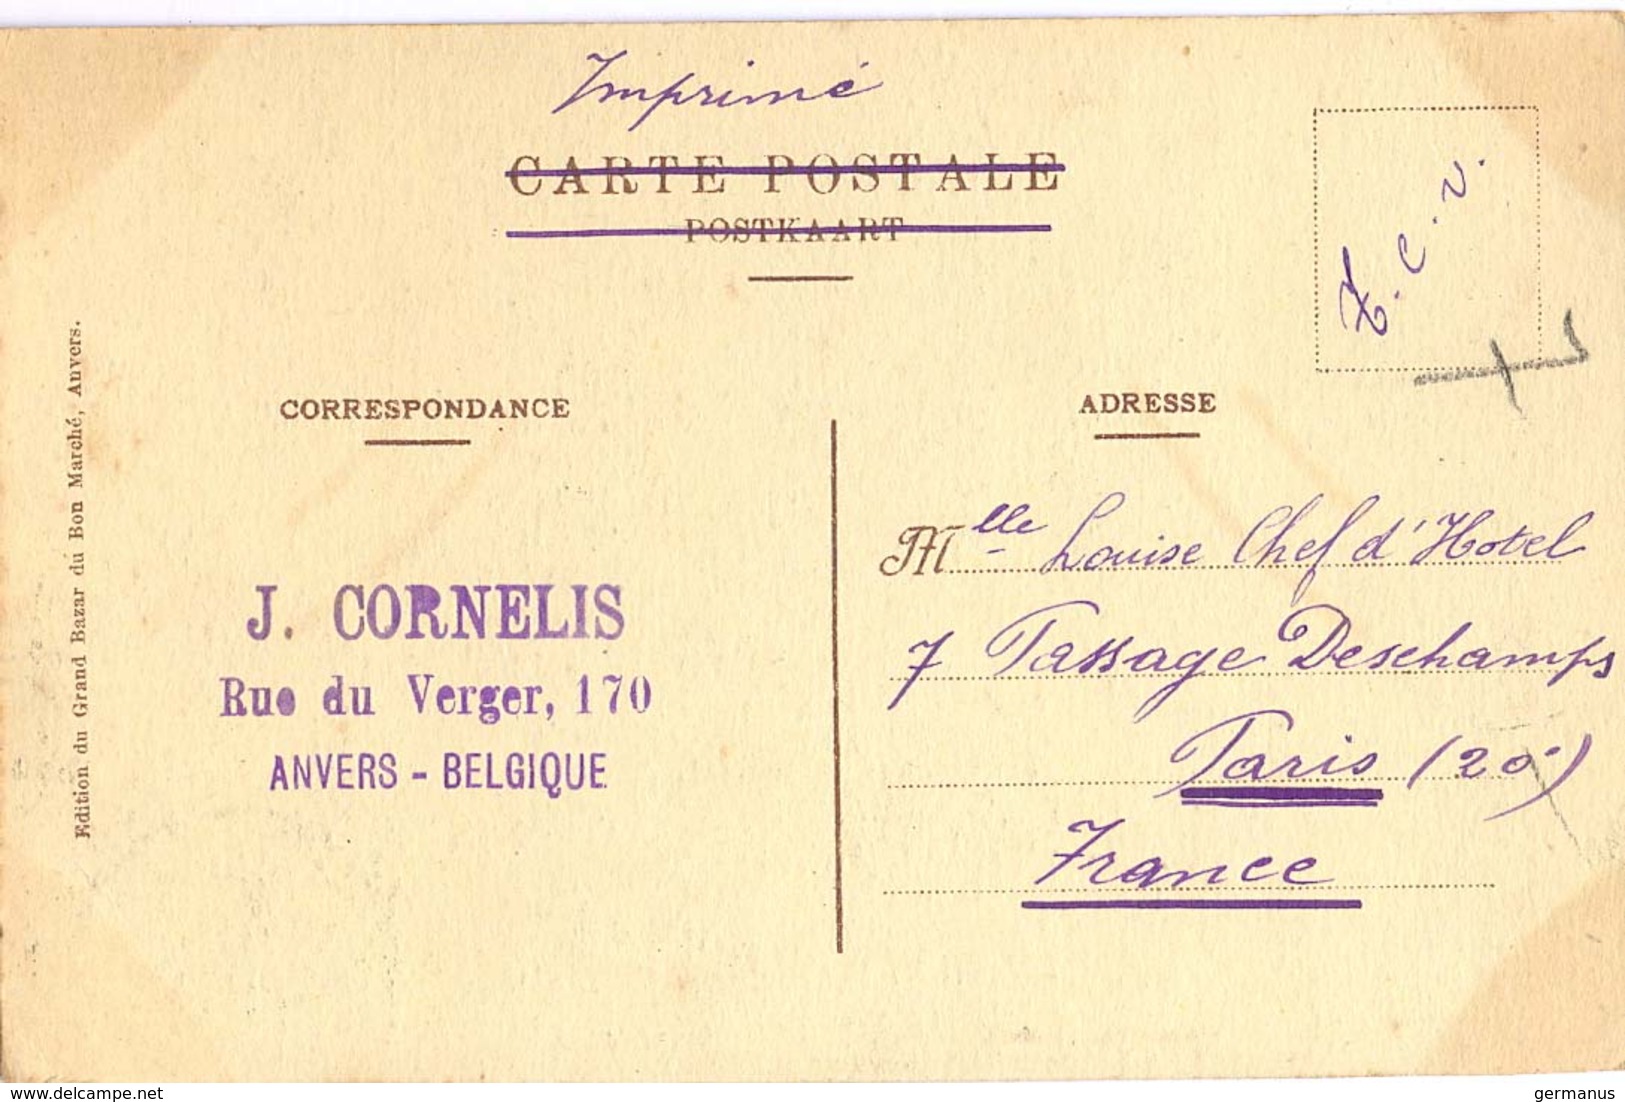 Imprimé
CARTE POSTALE
POSTKAART
T.C.V.
CORRESPONDANCE
ADRESSE
Edition du Grand Bazar du Bon Marché, Anvers.
J. CORNELIS
Rue du Verger, 170
ANVERS - BELGIQUE
Mlle Louise Chef d'Hotel
7 Passage Deschamps
Paris (20e)
France
delcampe.net
germanus